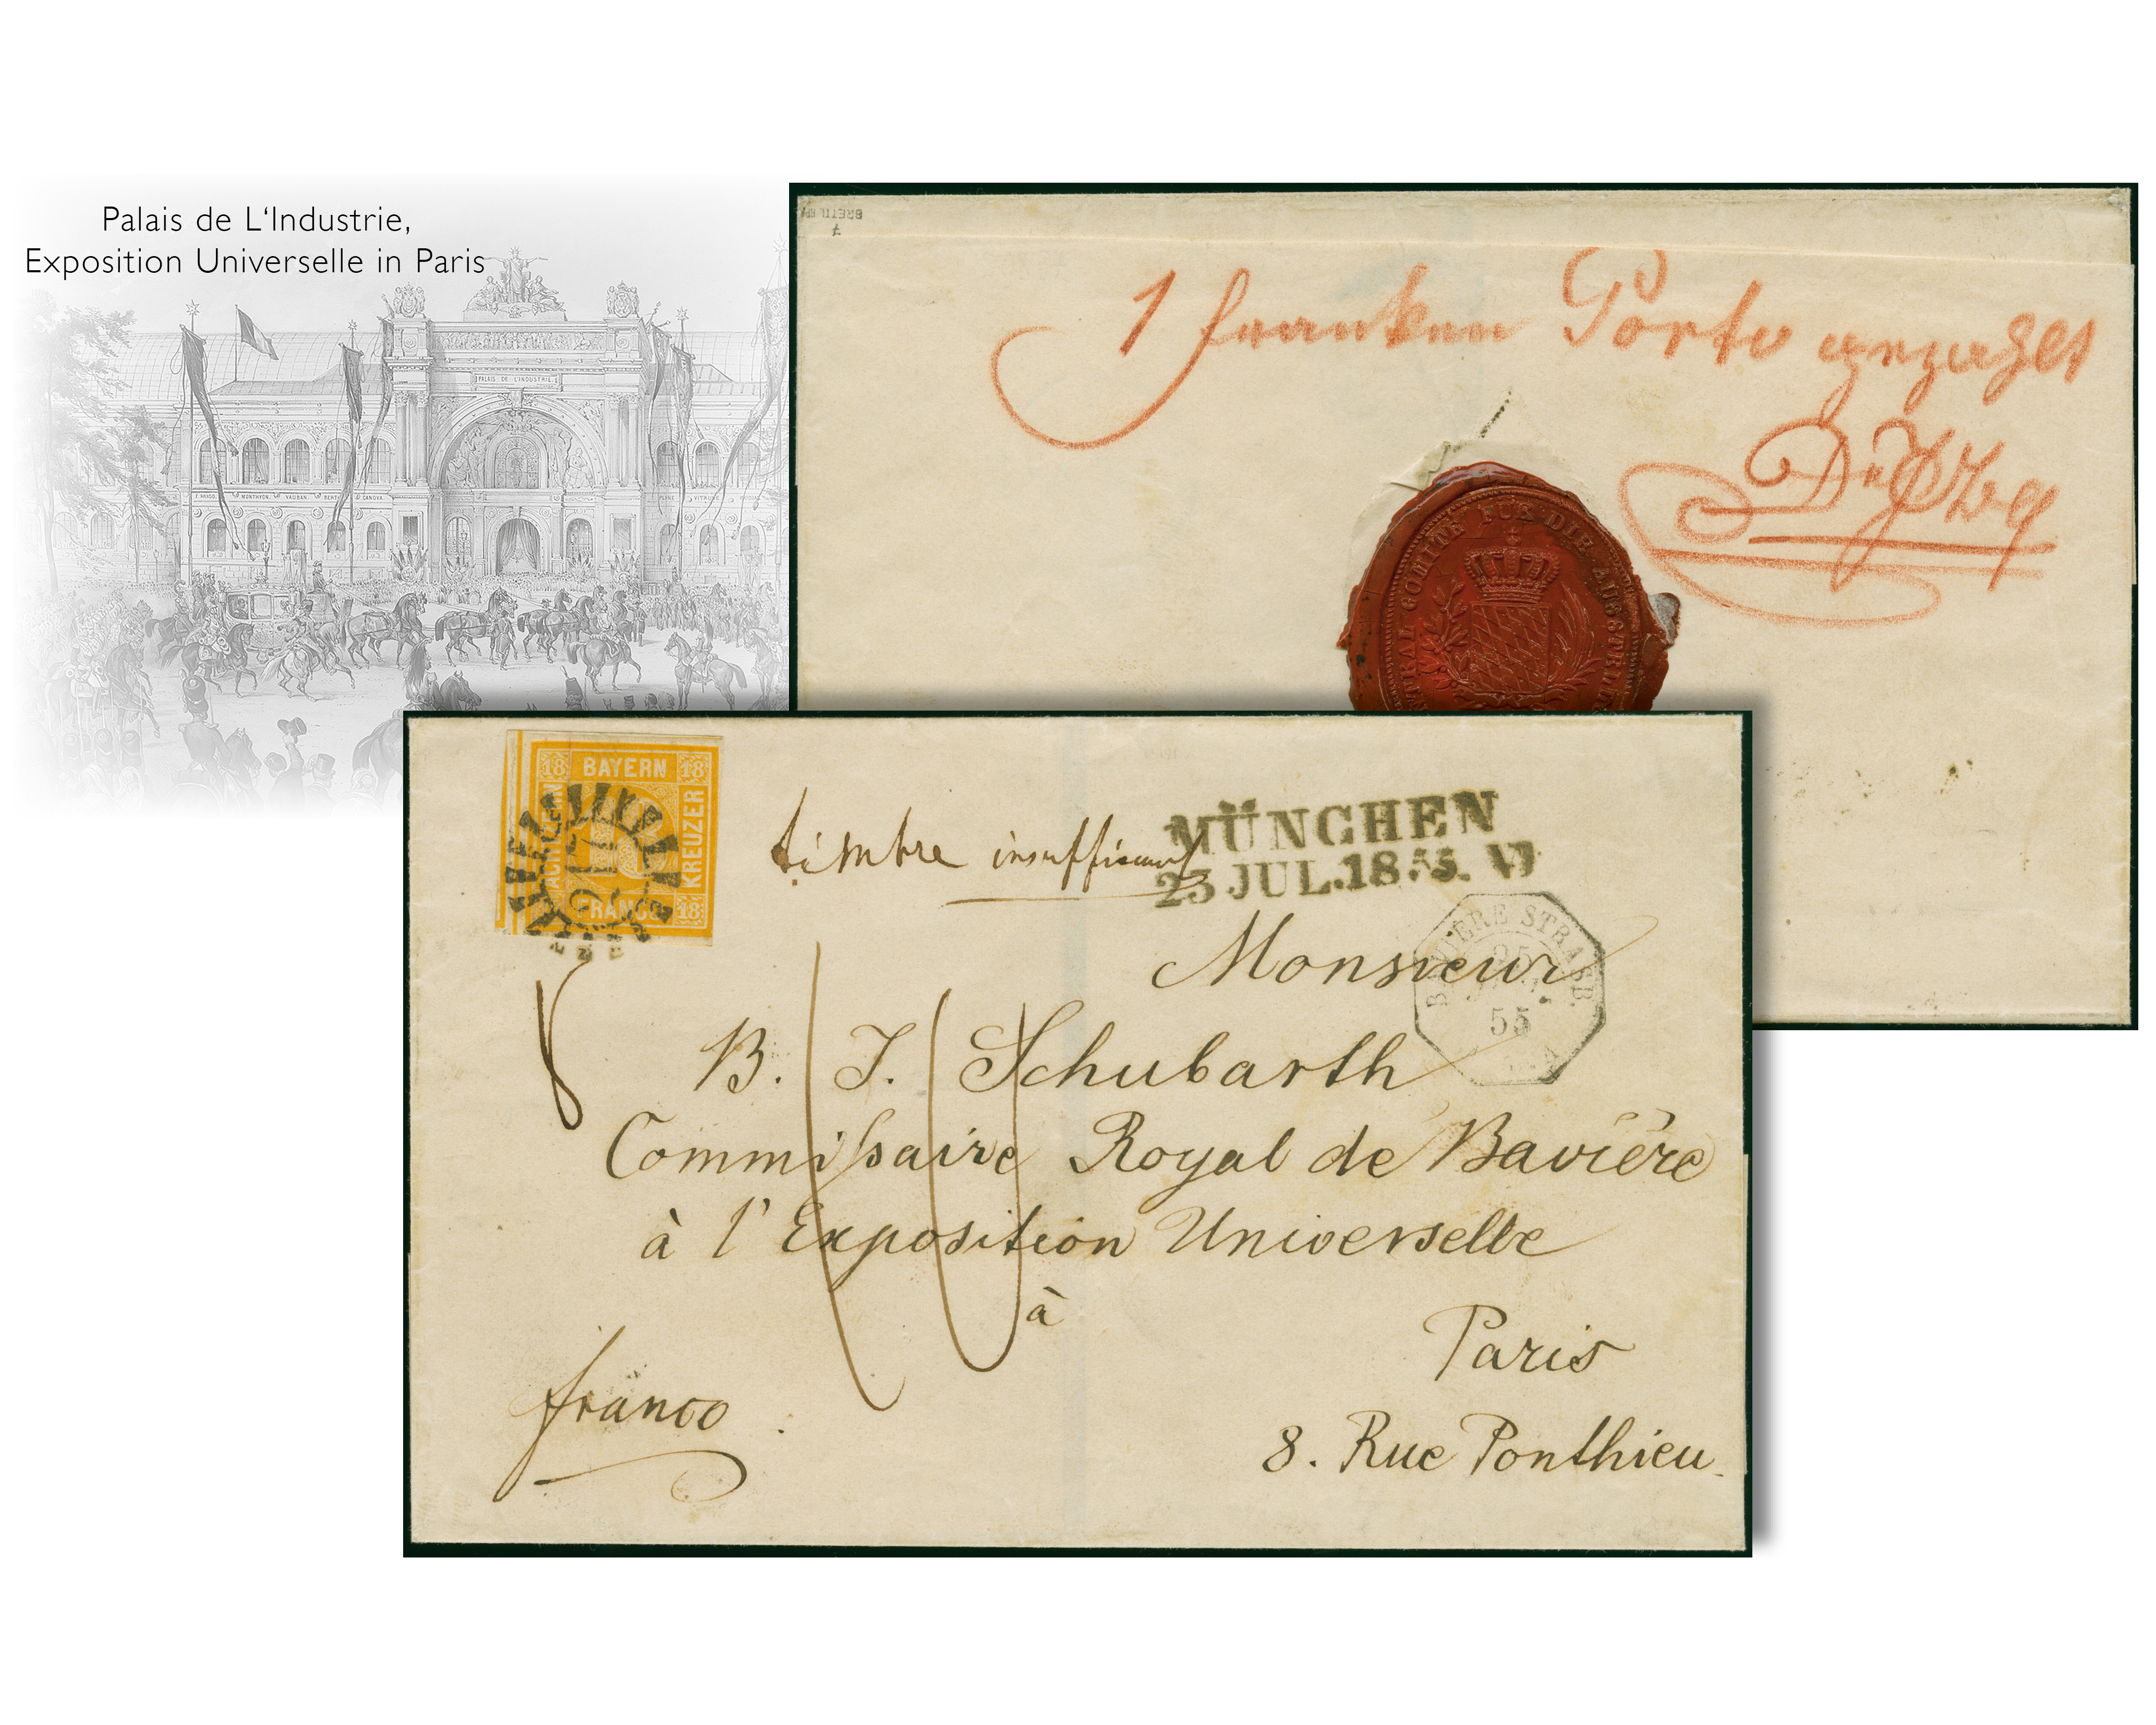 Palais de L‘Industrie,
Exposition Universelle in Paris
PALAIS DE L'INDUSTRIE
MONTHYON. VAUBAN. CANOVA
1 Franken Porto gezahlt
COMITE FUR DIE
18 BAYERN 18
KREUZER
FRANCO 18
timbre insuffisant
MÜNCHEN
23 JUL. 1855. VI
BAVIÈRE STRASB.
25
55
8
Monsieur
B. J. Schubarth
Commissaire Royal de Bavière
à l' Exposition Universelle
à
Paris
franco
8. Rue Ponthieu.